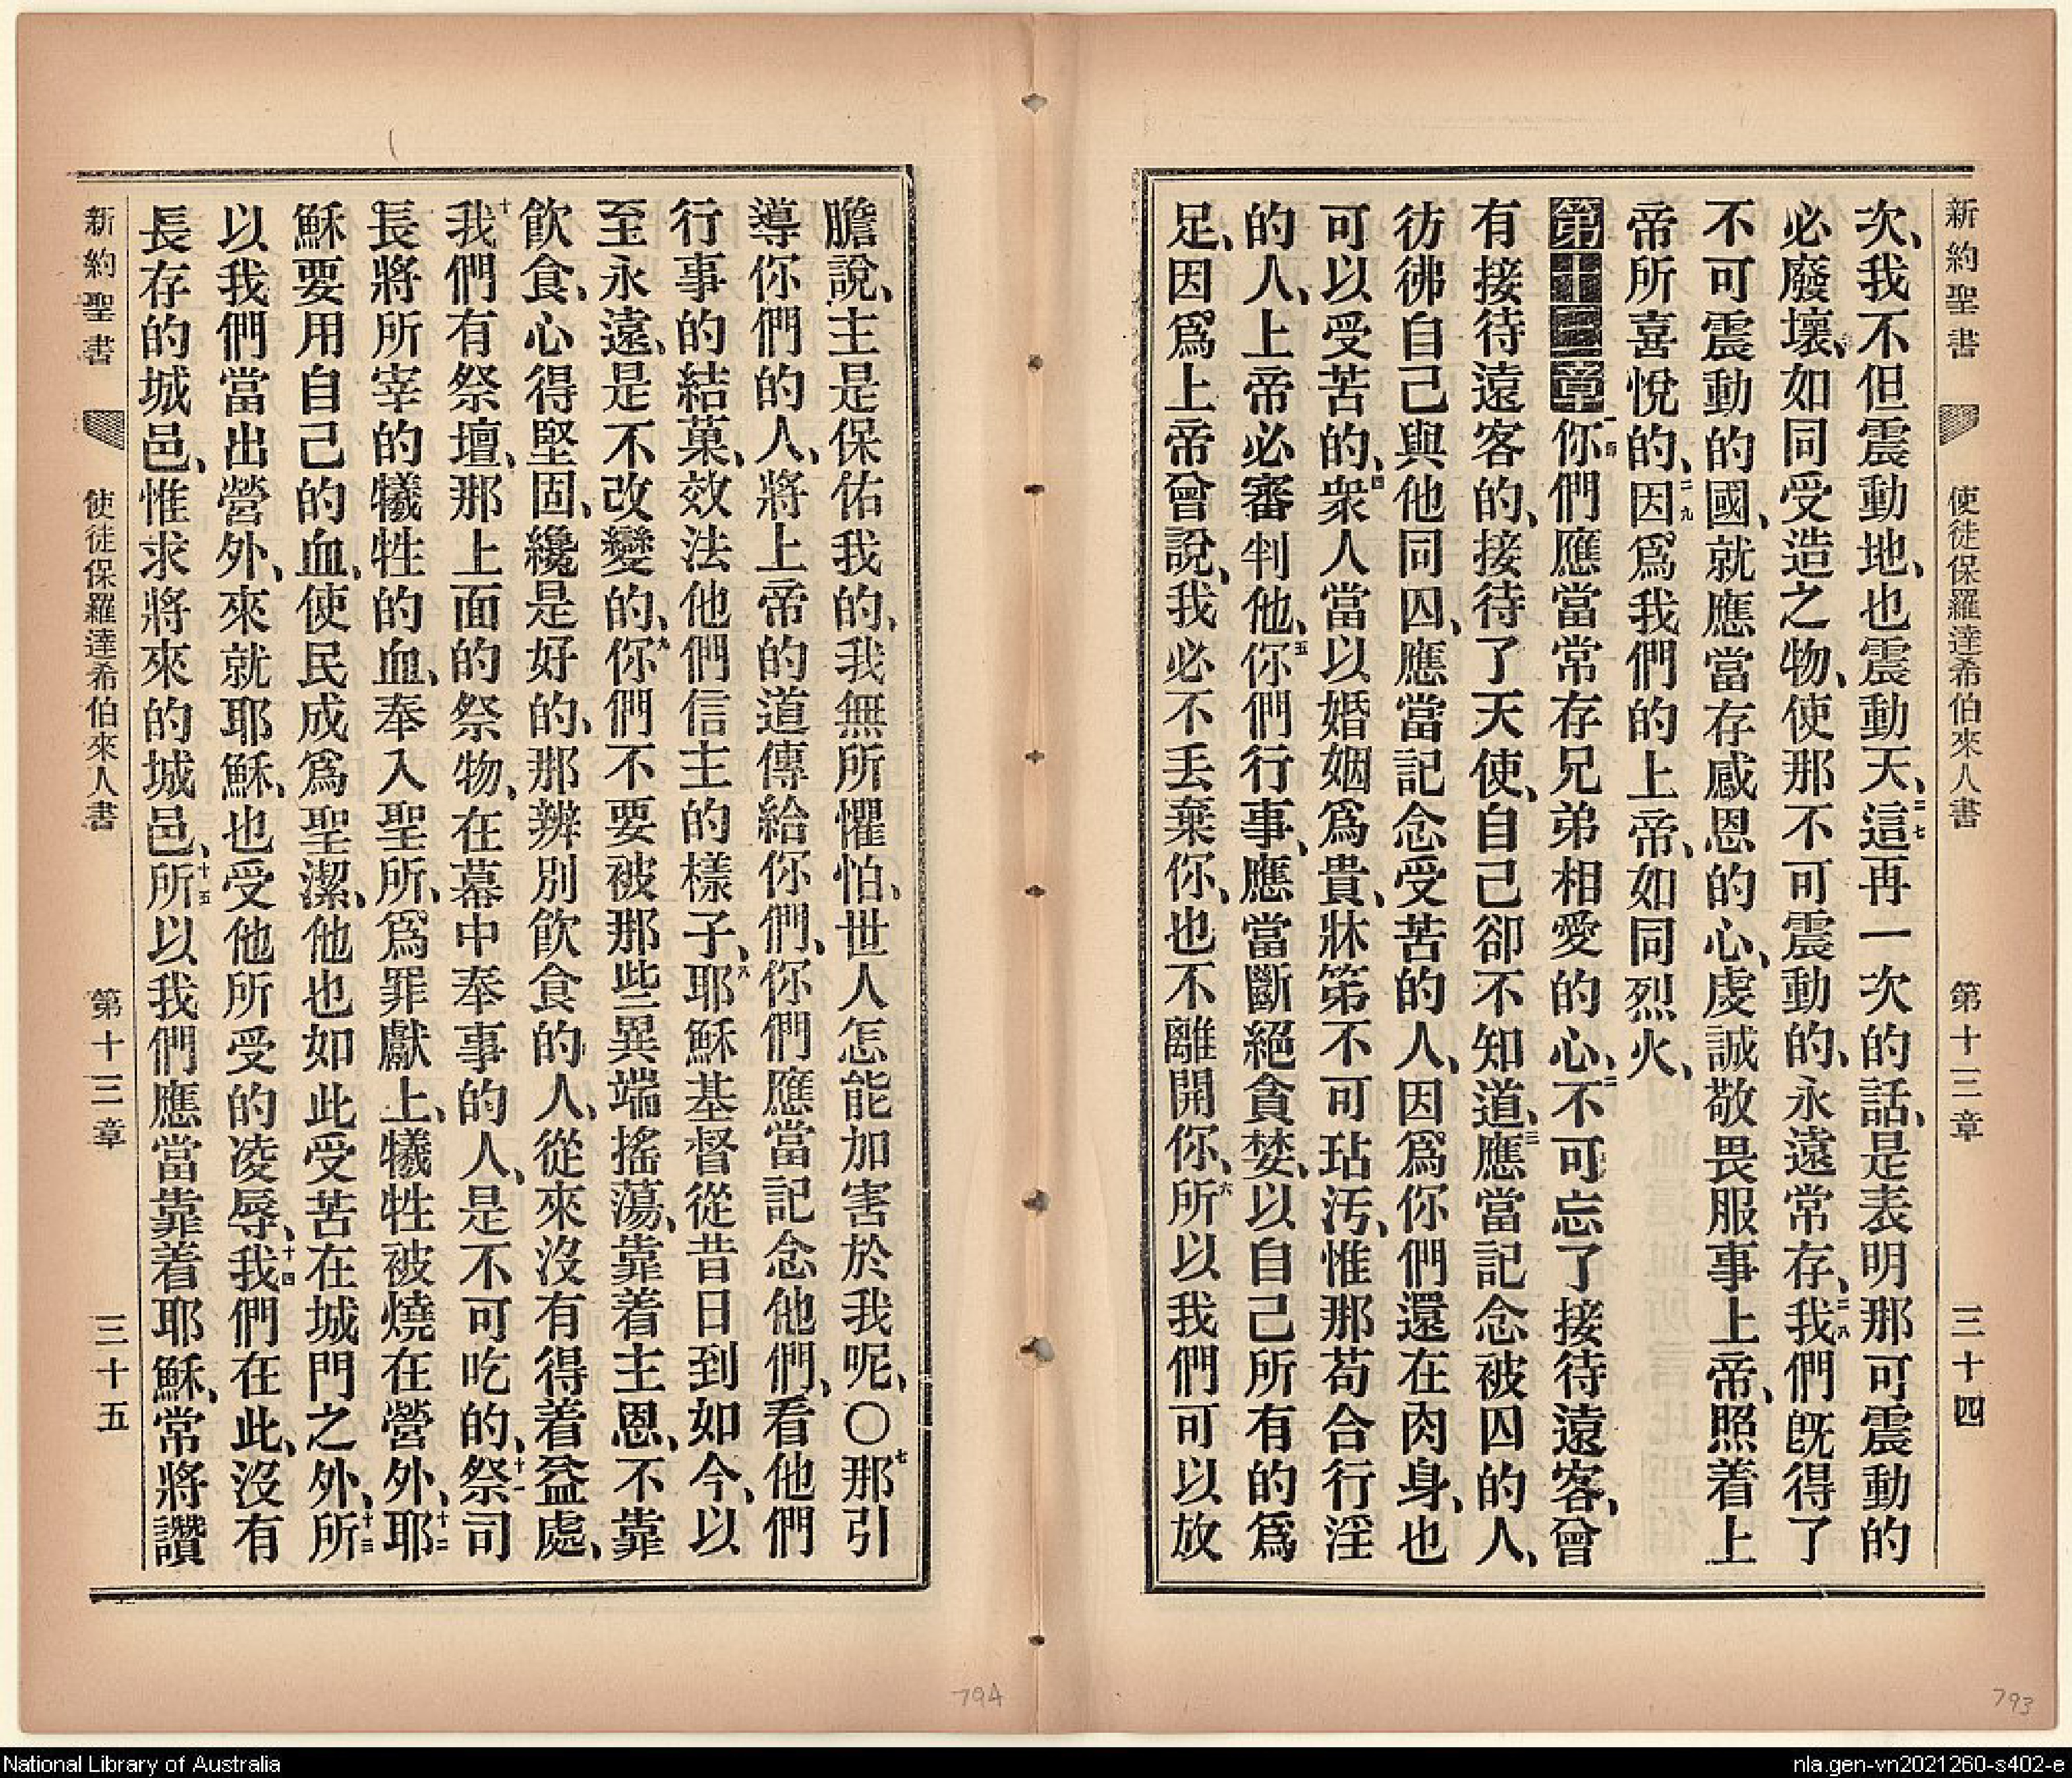 新約聖書 使徒保羅達希伯來人書 第十三章 三十四
次、我不但震動地、也震動天、二七這再一次的話、是表明那可震動的
必廢壞、如同受造之物、使那不可震動的、永遠常存、二八我們旣得了
不可震動的國、就應當存感恩的心、虔誠敬畏服事上帝、照着上
帝所喜悅的、二九因爲我們的上帝、如同烈火、
第十三章一你們應當常存兄弟相愛的心、二不可忘了接待遠客、曾
有接待遠客的、接待了天使、自己卻不知道、三應當記念被囚的人、
彷彿自己與他同囚、應當記念受苦的人、因爲你們還在肉身、也
可以受苦的、四衆人當以婚姻爲貴、牀第不可玷汚、惟那苟合行淫
的人、上帝必審判他、五你們行事、應當斷絕貪婪、以自己所有的爲
足、因爲上帝曾說、我必不丟棄你、也不離開你、六所以我們可以放
膽說、主是保佑我的、我無所懼怕、世人怎能加害於我呢、〇七那引
導你們的人、將上帝的道傳給你們、你們應當記念他們、看他們
行事的結菓、效法他們信主的樣子、八耶穌基督從昔日到如今、以
至永遠、是不改變的、九你們不要被那些異端搖蕩、靠着主恩、不靠
飲食、心得堅固、纔是好的、那辨別飲食的人、從來沒有得着益處、
十我們有祭壇、那上面的祭物、在幕中奉事的人、是不可吃的、十一祭司
長將所宰的犧牲的血、奉入聖所、爲罪獻上、犧牲被燒在營外、十二耶
穌要用自己的血、使民成爲聖潔、他也如此受苦在城門之外、十三所
以我們當出營外、來就耶穌、也受他所受的凌辱、十四我們在此、沒有
長存的城邑、惟求將來的城邑、十五所以我們應當靠着耶穌、常將讚
新約聖書 使徒保羅達希伯來人書 第十三章 三十五
794
793
National Library of Australia
nla.gen-vn2021260-s402-e